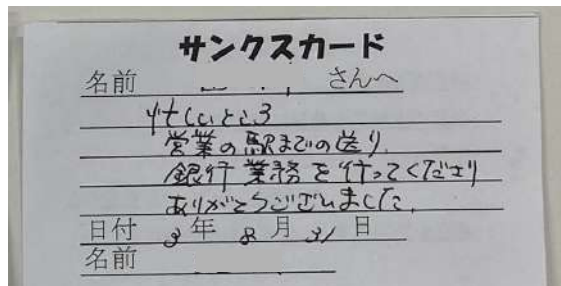 サンクスカード
名前 さんへ
忙しいところ
営業の駅までの送り、
銀行業務を行ってくださり
ありがとうございました。
日付 3年 8月 31日
名前